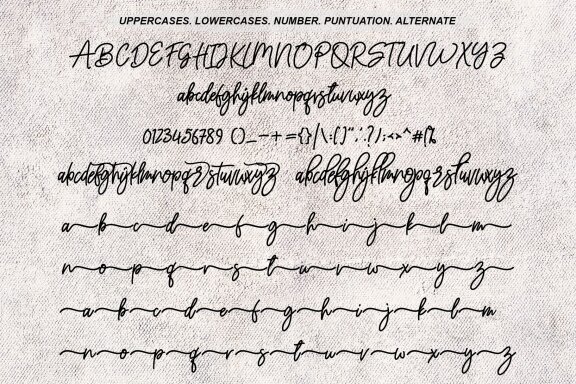 UPPERCASES. LOWERCASES. NUMBER. PUNTUATION. ALTERNATE
ABCDEFGHIJKLMNOPQRSTUVWXYZ
abcdefghijklmnopqrstuvwxyz
0123456789 ()_-+={}|\:()"'.?/;<>^#%
abcdefghijklmnopqrstuvwxyz abcdefghijklmnopqrstuvwxyz
a b c d e f g h i j k l m
n o p q r s t u v w x y z
a b c d e f g h i j k l m
n o p q r s t u v w x y z